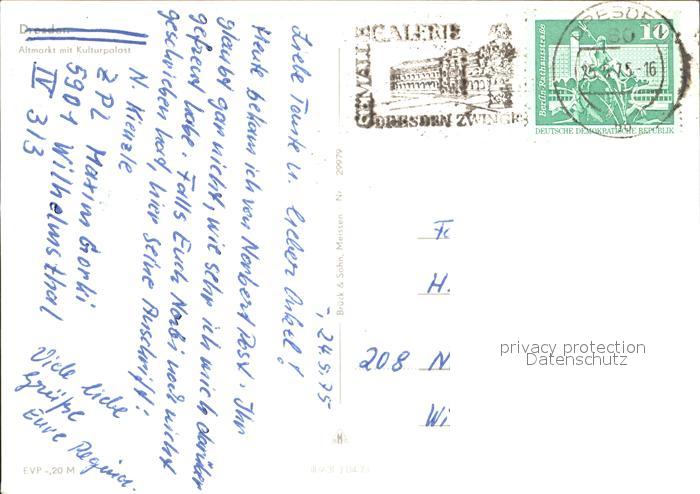 Dresden
Altmarkt mit Kulturpalast
-, 24.9.75
Liebe Tante u. lieber Onkel!
Heute bekam ich von Norbert Post. Ihr
glaubt gar nicht, wie sehr ich mich darüber
gefreut habe. Falls Euch Norbi noch nicht
geschrieben hat, hier seine Anschrift:
N. Kienzle
ZPL Maxim Gorki
5901 Wilhelmsthal
IV 313
Viele liebe
Grüße
Eure Regina.
EVP -,20 M
Brück & Sohn, Meissen Nr 29979
GEMÄLDE
GALERIE
DRESDEN ZWINGER
DRESDEN
-16
10
Berlin-Rathausstraße
DEUTSCHE DEMOKRATISCHE REPUBLIK
H.
208 N
Wi
privacy protection
Datenschutz